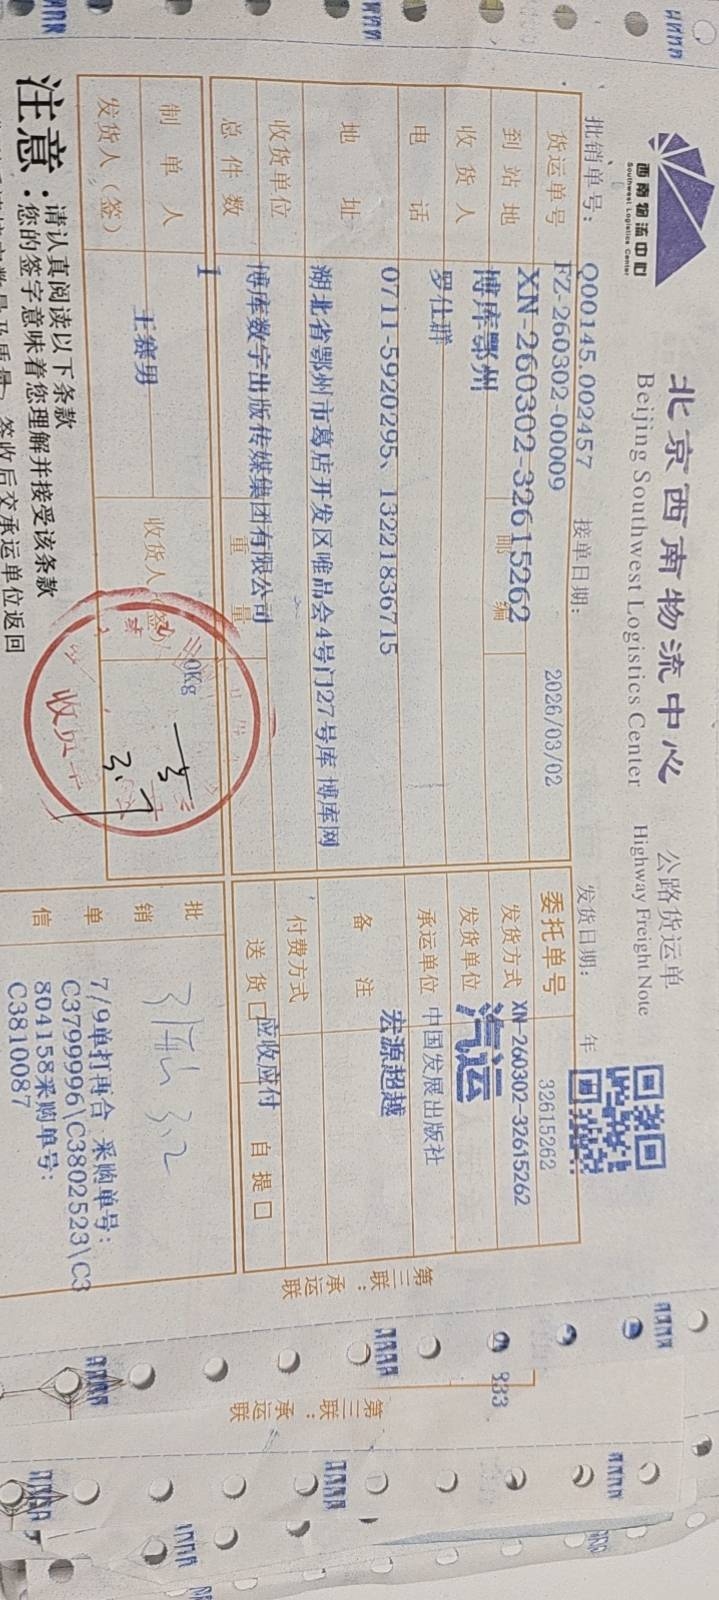 西南物流中心
Southwest Logistics Center
北京西南物流中心 公路货运单
Beijing Southwest Logistics Center Highway Freight Note
批销单号: Q00145.002457 接单日期: 2026/03/02 发货日期: 年
货运单号 FZ-260302-00009
XN-260302-32615262
委托单号 32615262
XN-260302-32615262
到站地 博库鄂州 邮编
发货方式 汽运
收货人 罗仕群
发货单位 中国发展出版社
电话 0711-5920295、13221836715
承运单位 宏源超越
地址 湖北省鄂州市葛店开发区唯品会4号门27号库 博库网
备注
收货单位 博库数字出版传媒集团有限公司
付费方式 应收应付
总件数 1 重量 0Kg
送货口 自提口
制单人 王赛男 收货人(签)
发货人(签)
收货章
3.7
批销单信
3.2
7/9单打再合 采购单号:
C3799996\C3802523\C3
804158采购单号:
C3810087
第三联:承运联
注意:
请认真阅读以下条款
您的签字意味着您理解并接受该条款
签收后交承运单位返回
833
第三联:承运联